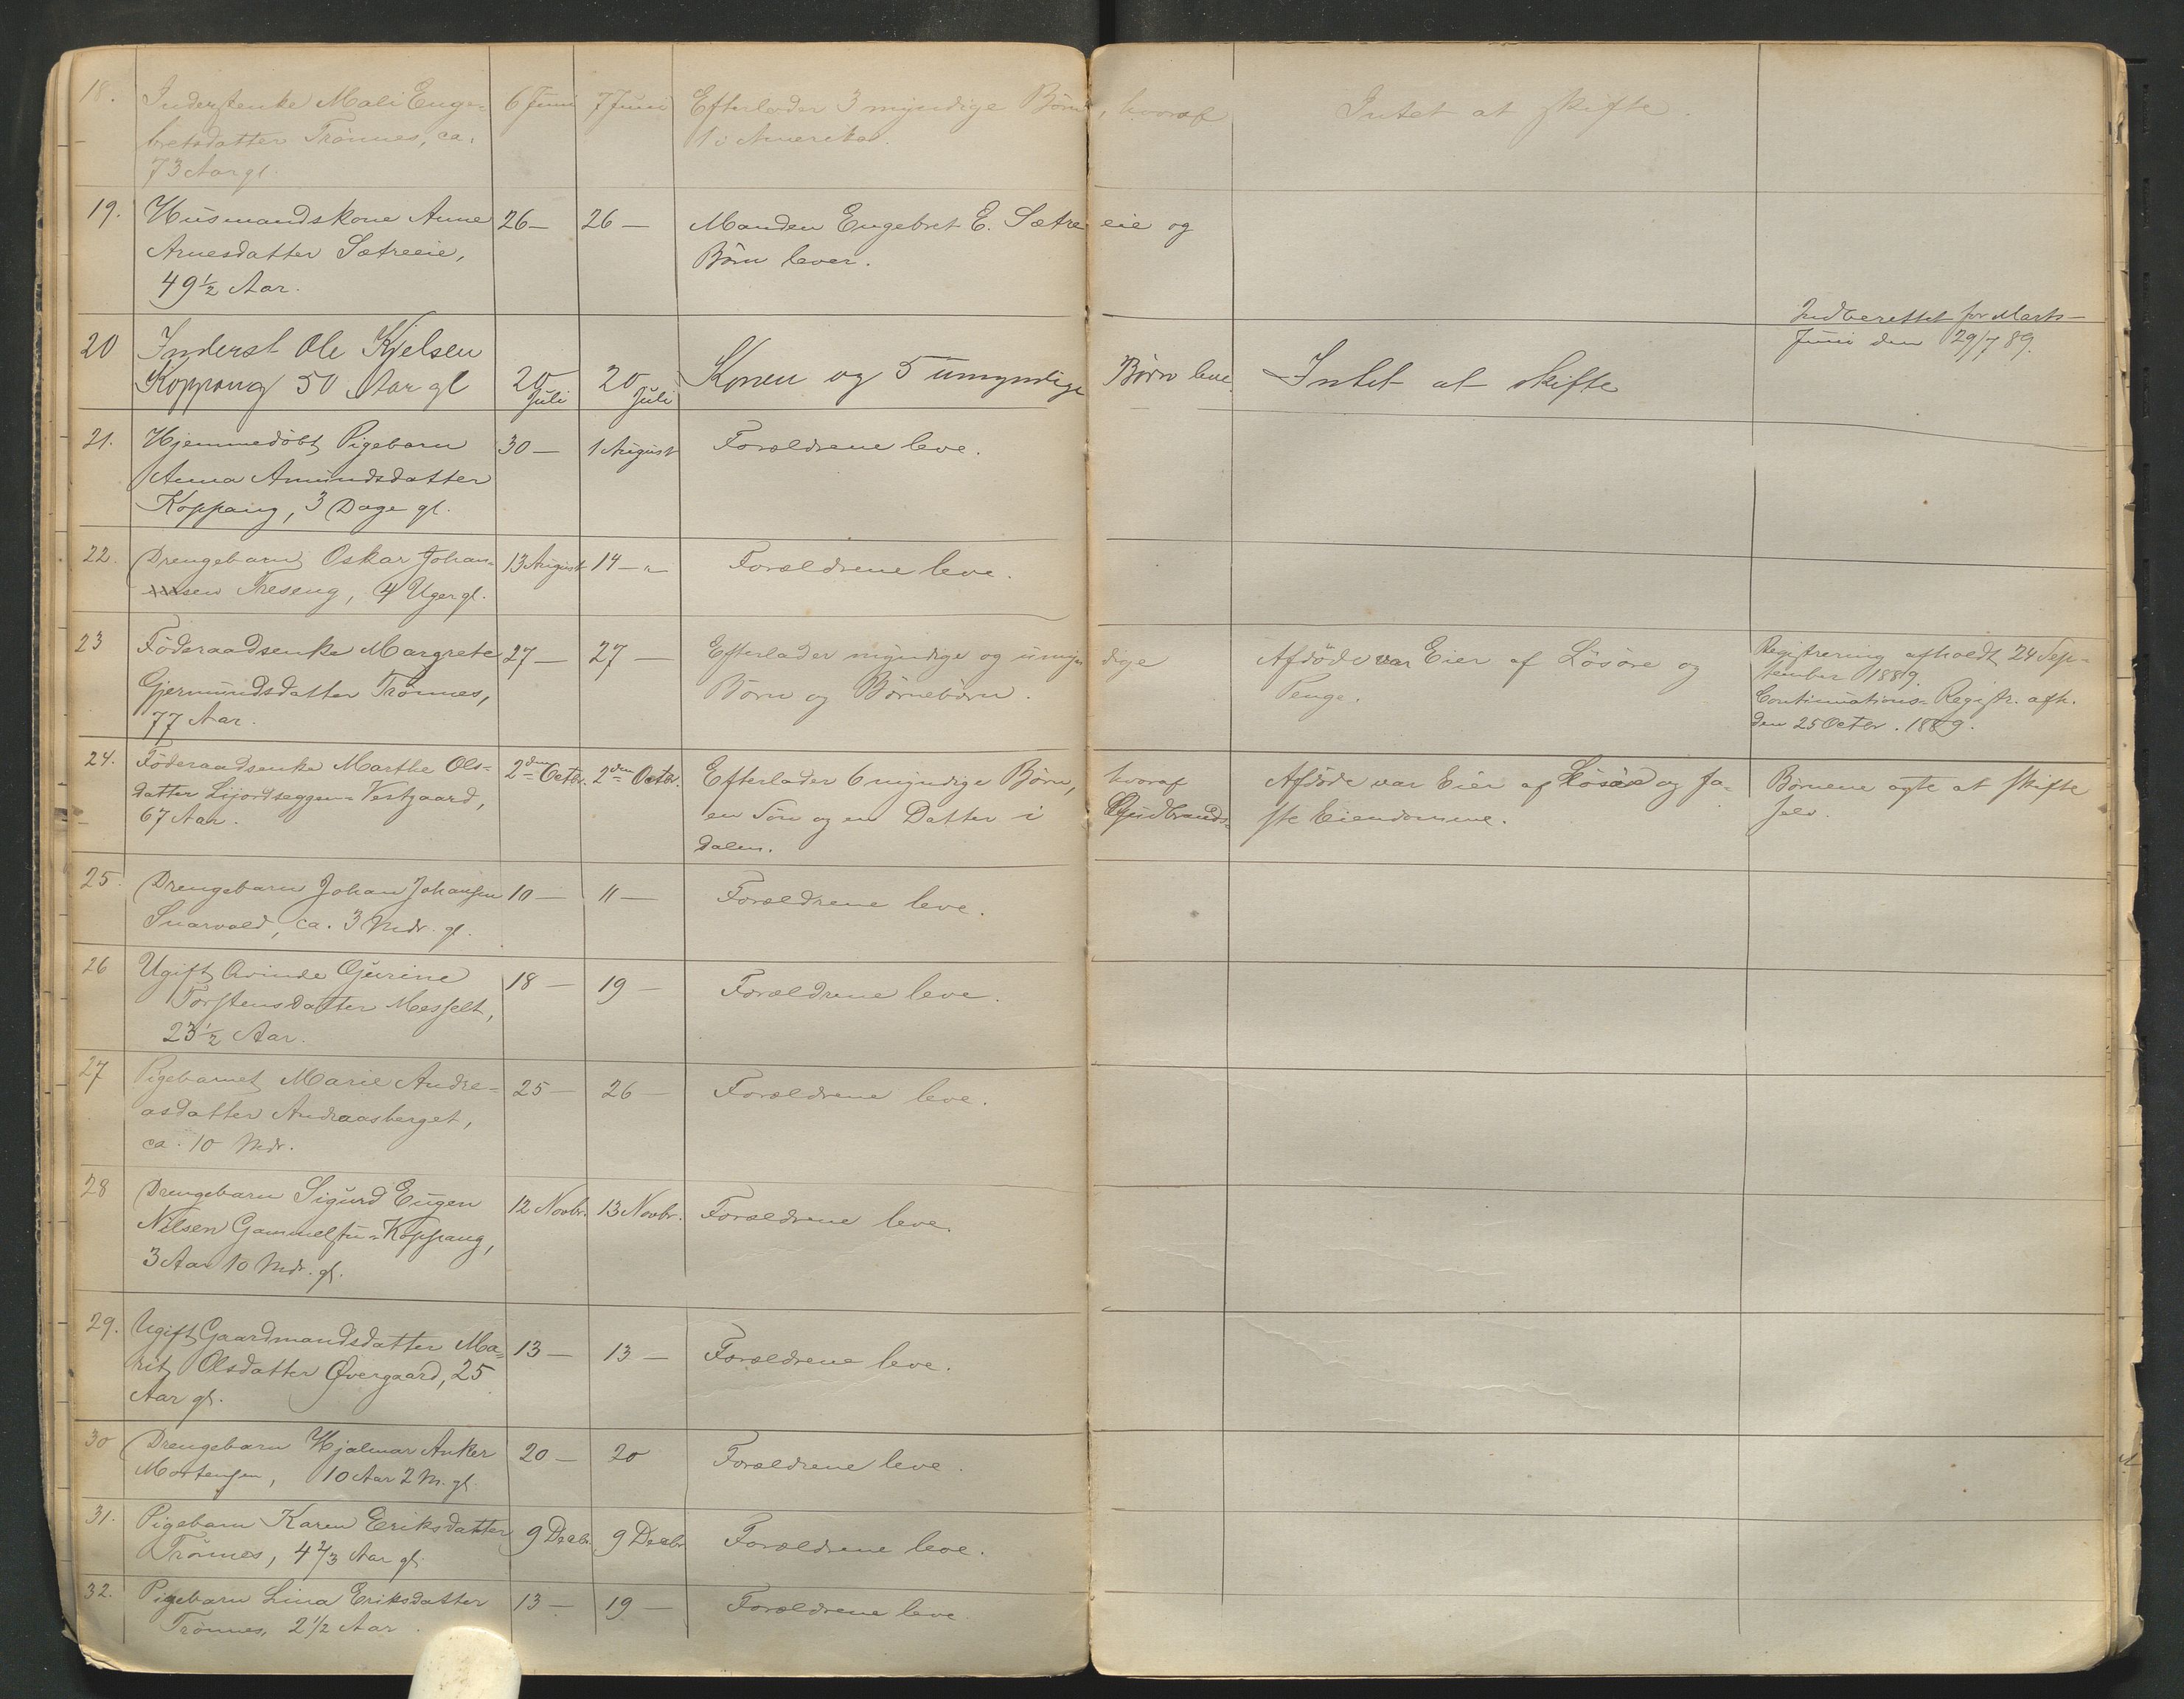 18. Inderstenke Mali Enge= 6 Juni 7 Juni Efterlader 3 myndige Børn, hvoraf Intet at skifte.
bretsdatter Trönnes, ca. 1 i Amerika.
73 Aar gl.
19. Husmandskone Anne 26 — 26 — Manden Engebret E. Sætre eie og
Arnesdatter Sætreeie, Børn lever.
49 ½ Aar.
Indberettet for Marts-
Juni den 29/7 89.
20 Inderst Ole Kjelsen
Koppang 50 Aar gl 20 Juli 20 Juli Konen og 5 umyndige Børn leve. Intet at skifte
21. Hjemmedöbt Pigebarn 30 — 1 August Forældrene leve.
Anna Amundsdatter
Koppang, 3 Dage gl.
22. Drengebarn Oskar Johan= 13 August 14 — " Forældrene leve.
sen Treseng, 4 Uger gl.
23 Föderaadsenke Margrete 27 — 27 — Efterlader myndige og umyn dige Afdöde var Eier af Lösöre og Registrering afholdt 24 Sep=
Gjermundsdatter Trönnes, Börn og Börnebörn. Penge. tember 1889.
77 Aar. Continuations= Registr. afh.
den 25 Octbr. 1889.
24. Föderaadsenke Marthe Ols= 2den Octbr. 2den Octbr. Efterlader 6 myndige Börn, hvoraf Afdöde var Eier af Lösöre og fa= Börnene agte at skifte
datter Lijordseggen= Vestgaard, en Sön og en Datter i Gudbrands= ste Eiendomme. selv.
67 Aar. dalen.
25. Drengebarn Johan Johansen 10 — 11 — Forældrene leve.
Snarvold, ca. 3 Mdr. gl.
26 Ugift Qvinde Gurine 18 — 19 — Forældrene leve.
Torstensdatter Messelt,
23 ½ Aar.
27 Pigebarnet Marie Andre= 25 — 26 — Forældrene leve.
asdatter Andraasberget,
ca. 10 Mdr.
28 Drengebarn Sigurd Eugen 12 Novbr. 13 Novbr. Forældrene leve.
Nilsen Gammelstu= Koppang,
3 Aar 10 Mdr. gl.
29. Ugift Gaardmandsdatter Ma= 13 — 13 — Forældrene leve.
rit Olsdatter Øvergaard, 25
Aar gl.
30 Drengebarn Hjalmar Anker 20 — 20 Forældrene leve.
Mortensen, 10 Aar 2 M. gl.
31. Pigebarn Karen Eriksdatter 9 Decbr. 9 Decbr Forældrene leve.
Trönnes, 4 2/3 Aar gl.
32. Pigebarn Lina Eriksdatter 13 — 19 — Forældrene leve.
Trönnes, 2 1/2 Aar.